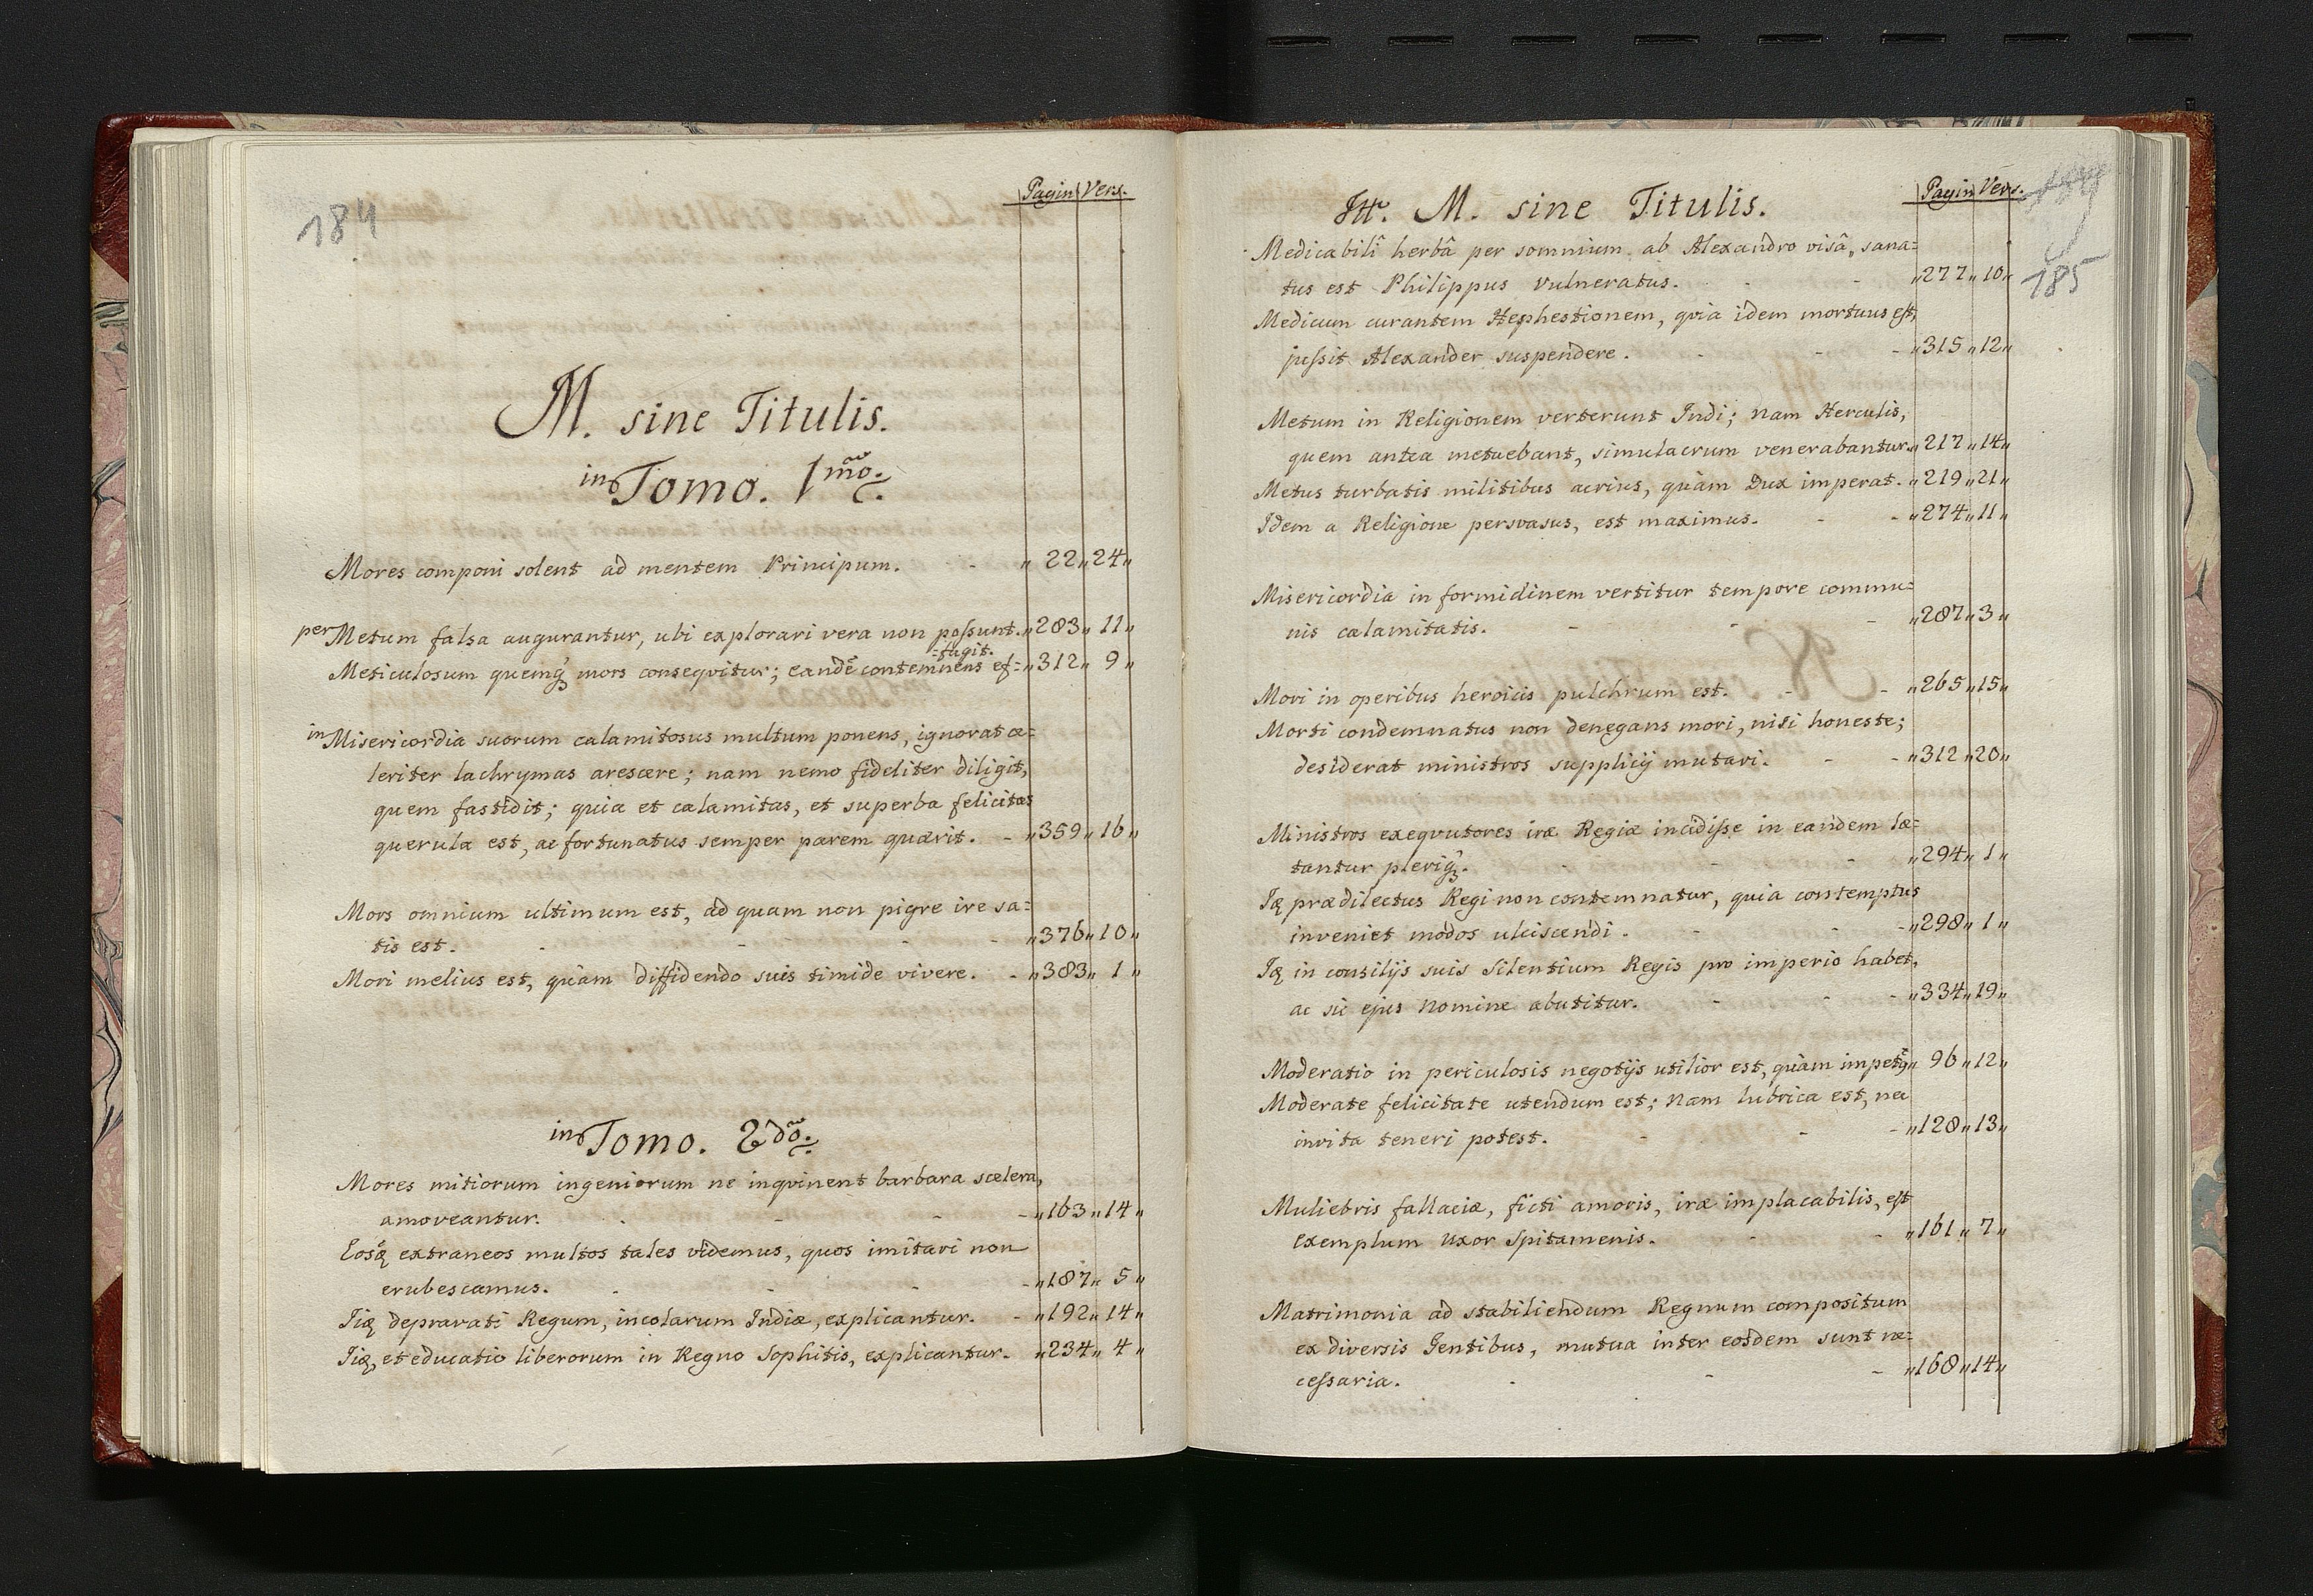 184
Pagin Vers.
M. sine Titulis.
in Tomo. 1mo.
Mores componi solent ad mentem Principum. - „ 22 „ 24 „
per Metum falsa augurantur, ubi explorari vera non possunt. „ 283 „ 11 „
=fugit.
Meticulosum quemq₃ mors conseqvitur; eandē contemnens ef= „ 312 „ 9 „
in Misericordia suorum calamitosus multum ponens, ignorat ce=
leriter lachrymas arescere; nam nemo fideliter diligit,
quem fastidit; quia et calamitas, et superba felicitas
querula est, ac fortunatus semper parem quærit. - „ 359 „ 16 „
Mors omnium ultimum est, ad quam non pigre ire sa=
tis est. - - - - „ 376 „ 10 „
Mori melius est, quàm diffidendo suis timide vivere. - „ 383 „ 1 „
in Tomo. 2do.
Mores mitiorum ingeniorum ne inqvinent barbara scelera,
amoveantur. - - - - „ 163 „ 14 „
Eosq extraneos multos tales videmus, quos imitari non
erubescamus. - - - - „ 187 „ 5 „
Iiq depravati Regum, incolarum Indiæ, explicantur. - „ 192 „ 14 „
Iiq, et educatio liberorum in Regno Sophitis, explicantur. „ 234 „ 4 „
Pagin Vers.
185
Ittr. M. sine Titulis.
Medicabili herbâ per somnium ab Alexandro visâ, sana=
tus est Philippus vulneratus. - - „ 277 „ 10 „
Medicum curantem Hephestionem, qvia idem mortuus est,
jussit Alexander suspendere. - - - „ 315 „ 12 „
Metum in Religionem verterunt Indi; nam Herculis,
quem antea metuebant, simulacrum venerabantur. „ 217 „ 14 „
Metus turbatis militibus acrius, quàm Dux imperat. „ 219 „ 21 „
Idem a Religione persvasus, est maximus. - - „ 274 „ 11 „
Misericordia in formidinem vertitur tempore commu=
nis calamitatis. - - - „ 287 „ 3 „
Mori in operibus heroicis pulchrum est. - - „ 265 „ 15 „
Morti condemnatus non denegans mori, nisi honeste;
desiderat ministros supplicij mutari. - - „ 312 „ 20 „
Ministros exeqvutores iræ Regiæ incidisse in eandem læ=
tantur pleriq₃. - - - „ 294 „ 1 „
Iq prædilectus Regi non contemnatur, quia contemptus
inveniet modos ulciscendi. - - - „ 298 „ 1 „
Iq in consilijs suis silentium Regis pro imperio habet,
ac sic ejus nomine abutitur. - - - „ 334 „ 19 „
Moderatio in periculosis negotijs utilior est, quàm impetq „ 96 „ 12 „
Moderate felicitate utendum est; nam lubrica est, nec
invita teneri potest. - - - „ 128 „ 13 „
Muliebris fallaciæ, ficti amoris, iræ implacabilis, est
exemplum uxor Spitamenis. - - „ 161 „ 7 „
Matrimonia ad stabiliendum Regnum compositum
ex diversis Gentibus, mutua inter eosdem sunt ne=
cessaria. - - - „ 168 „ 14 „